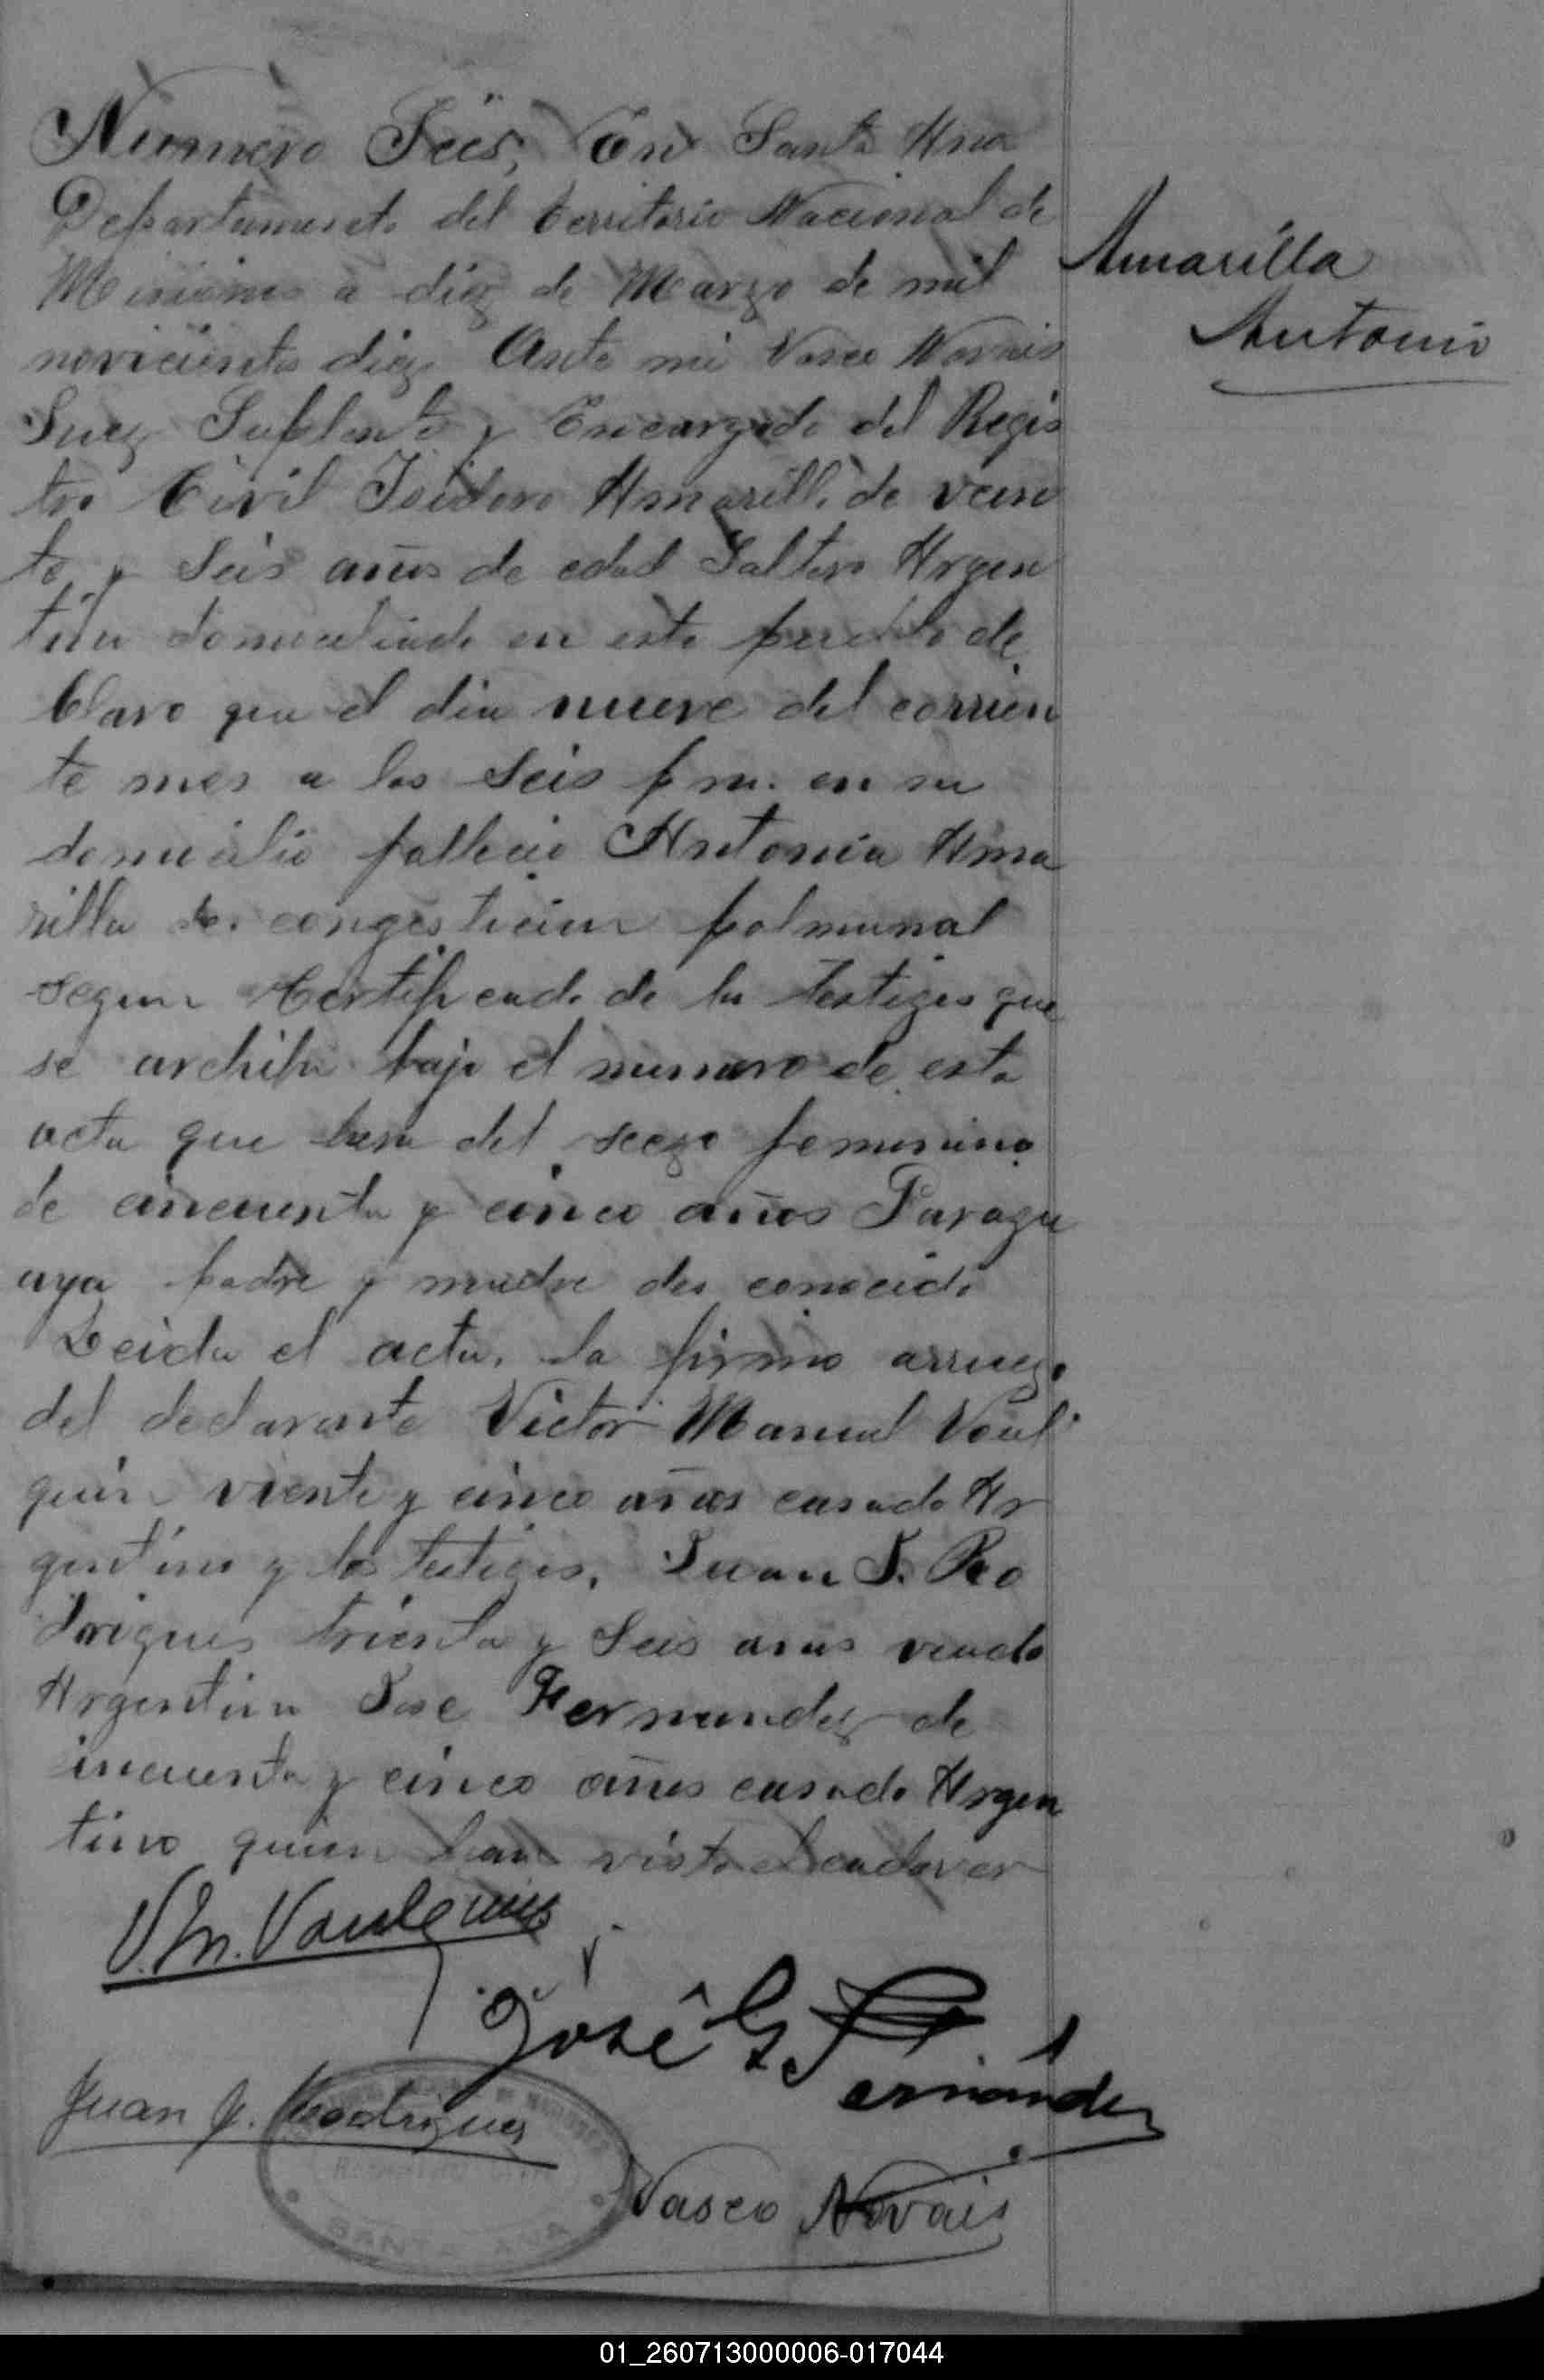 Numero Seis, En Santa Ana
Departamento del territorio Nacional de
Misiones a diez de Marzo de mil
novicientos diez Ante mi Vasco Novais
Juez Suplente y Encargado del Regis
tro Civil Isidoro Amarilla de vein
te y Seis años de edad Saltero Argen
tino domiciliado en este pueblo de
Claro que el dia nueve del corrien
te mes a las Seis p m. en su
domicilio fallecio Antonia Ama
rilla de congesticion polmunal
segun Certificado de los testigos que
se archiba bajo el numero de esta
acta que hera del sexo femenino
de cincuenta y cinco años Paragu
aya padre y madre des conocido
Leida el acta, la firmo arruego
del declarante Victor Manuel Vaul
quin viente y cinco años casado Ar
gentino y los testigos, Juan J. Ro
driques trienta y Seis anos viudo
Argentino Jose Fernandez de
incuenta y cinco años casado Argen
tino quien han visto el cadaver
Amarilla
Antonio
V. M. Vaulquin
José G. Fernandez
Juan J. Rodriguez
Vasco Novais
01_260713000006-017044